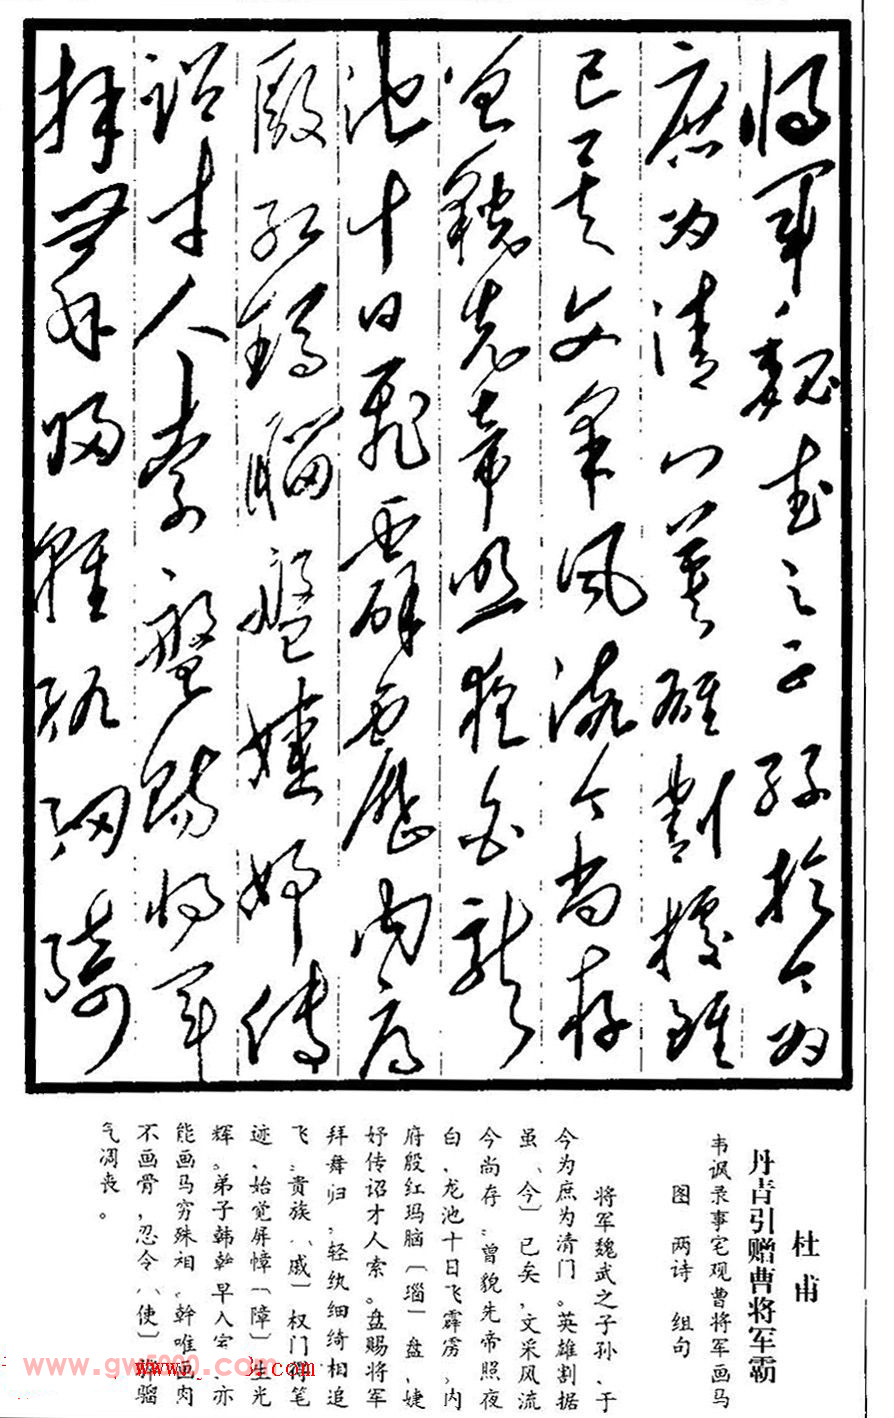 将军魏武之子孙于今为
庶为清门英雄割据虽
已矣文采风流今尚存
曾貌先帝照夜白龙
池十日飞霹雳内府
殷红玛瑙盘婕妤传
诏才人索盘赐将军
拜舞归轻纨细绮
杜甫
丹青引赠曹将军霸
韦讽录事宅观曹将军画马
图 两诗 组句
将军魏武之子孙、于
今为庶为清门。英雄割据
虽〔今〕已矣,文采风流
今尚存。曾貌先帝照夜
白、龙池十日飞霹雳、内
府殷红玛脑〔瑙〕盘、婕
妤传诏才人索。盘赐将军
拜舞归,轻纨细绮相追
飞。贵族〔戚〕权门得笔
迹、始觉屏幛〔障〕生光
辉。弟子韩幹早入室、亦
能画马穷殊相、幹唯画肉
不画骨,忍令〔使〕骅骝
气凋丧。
www.gw5000.com